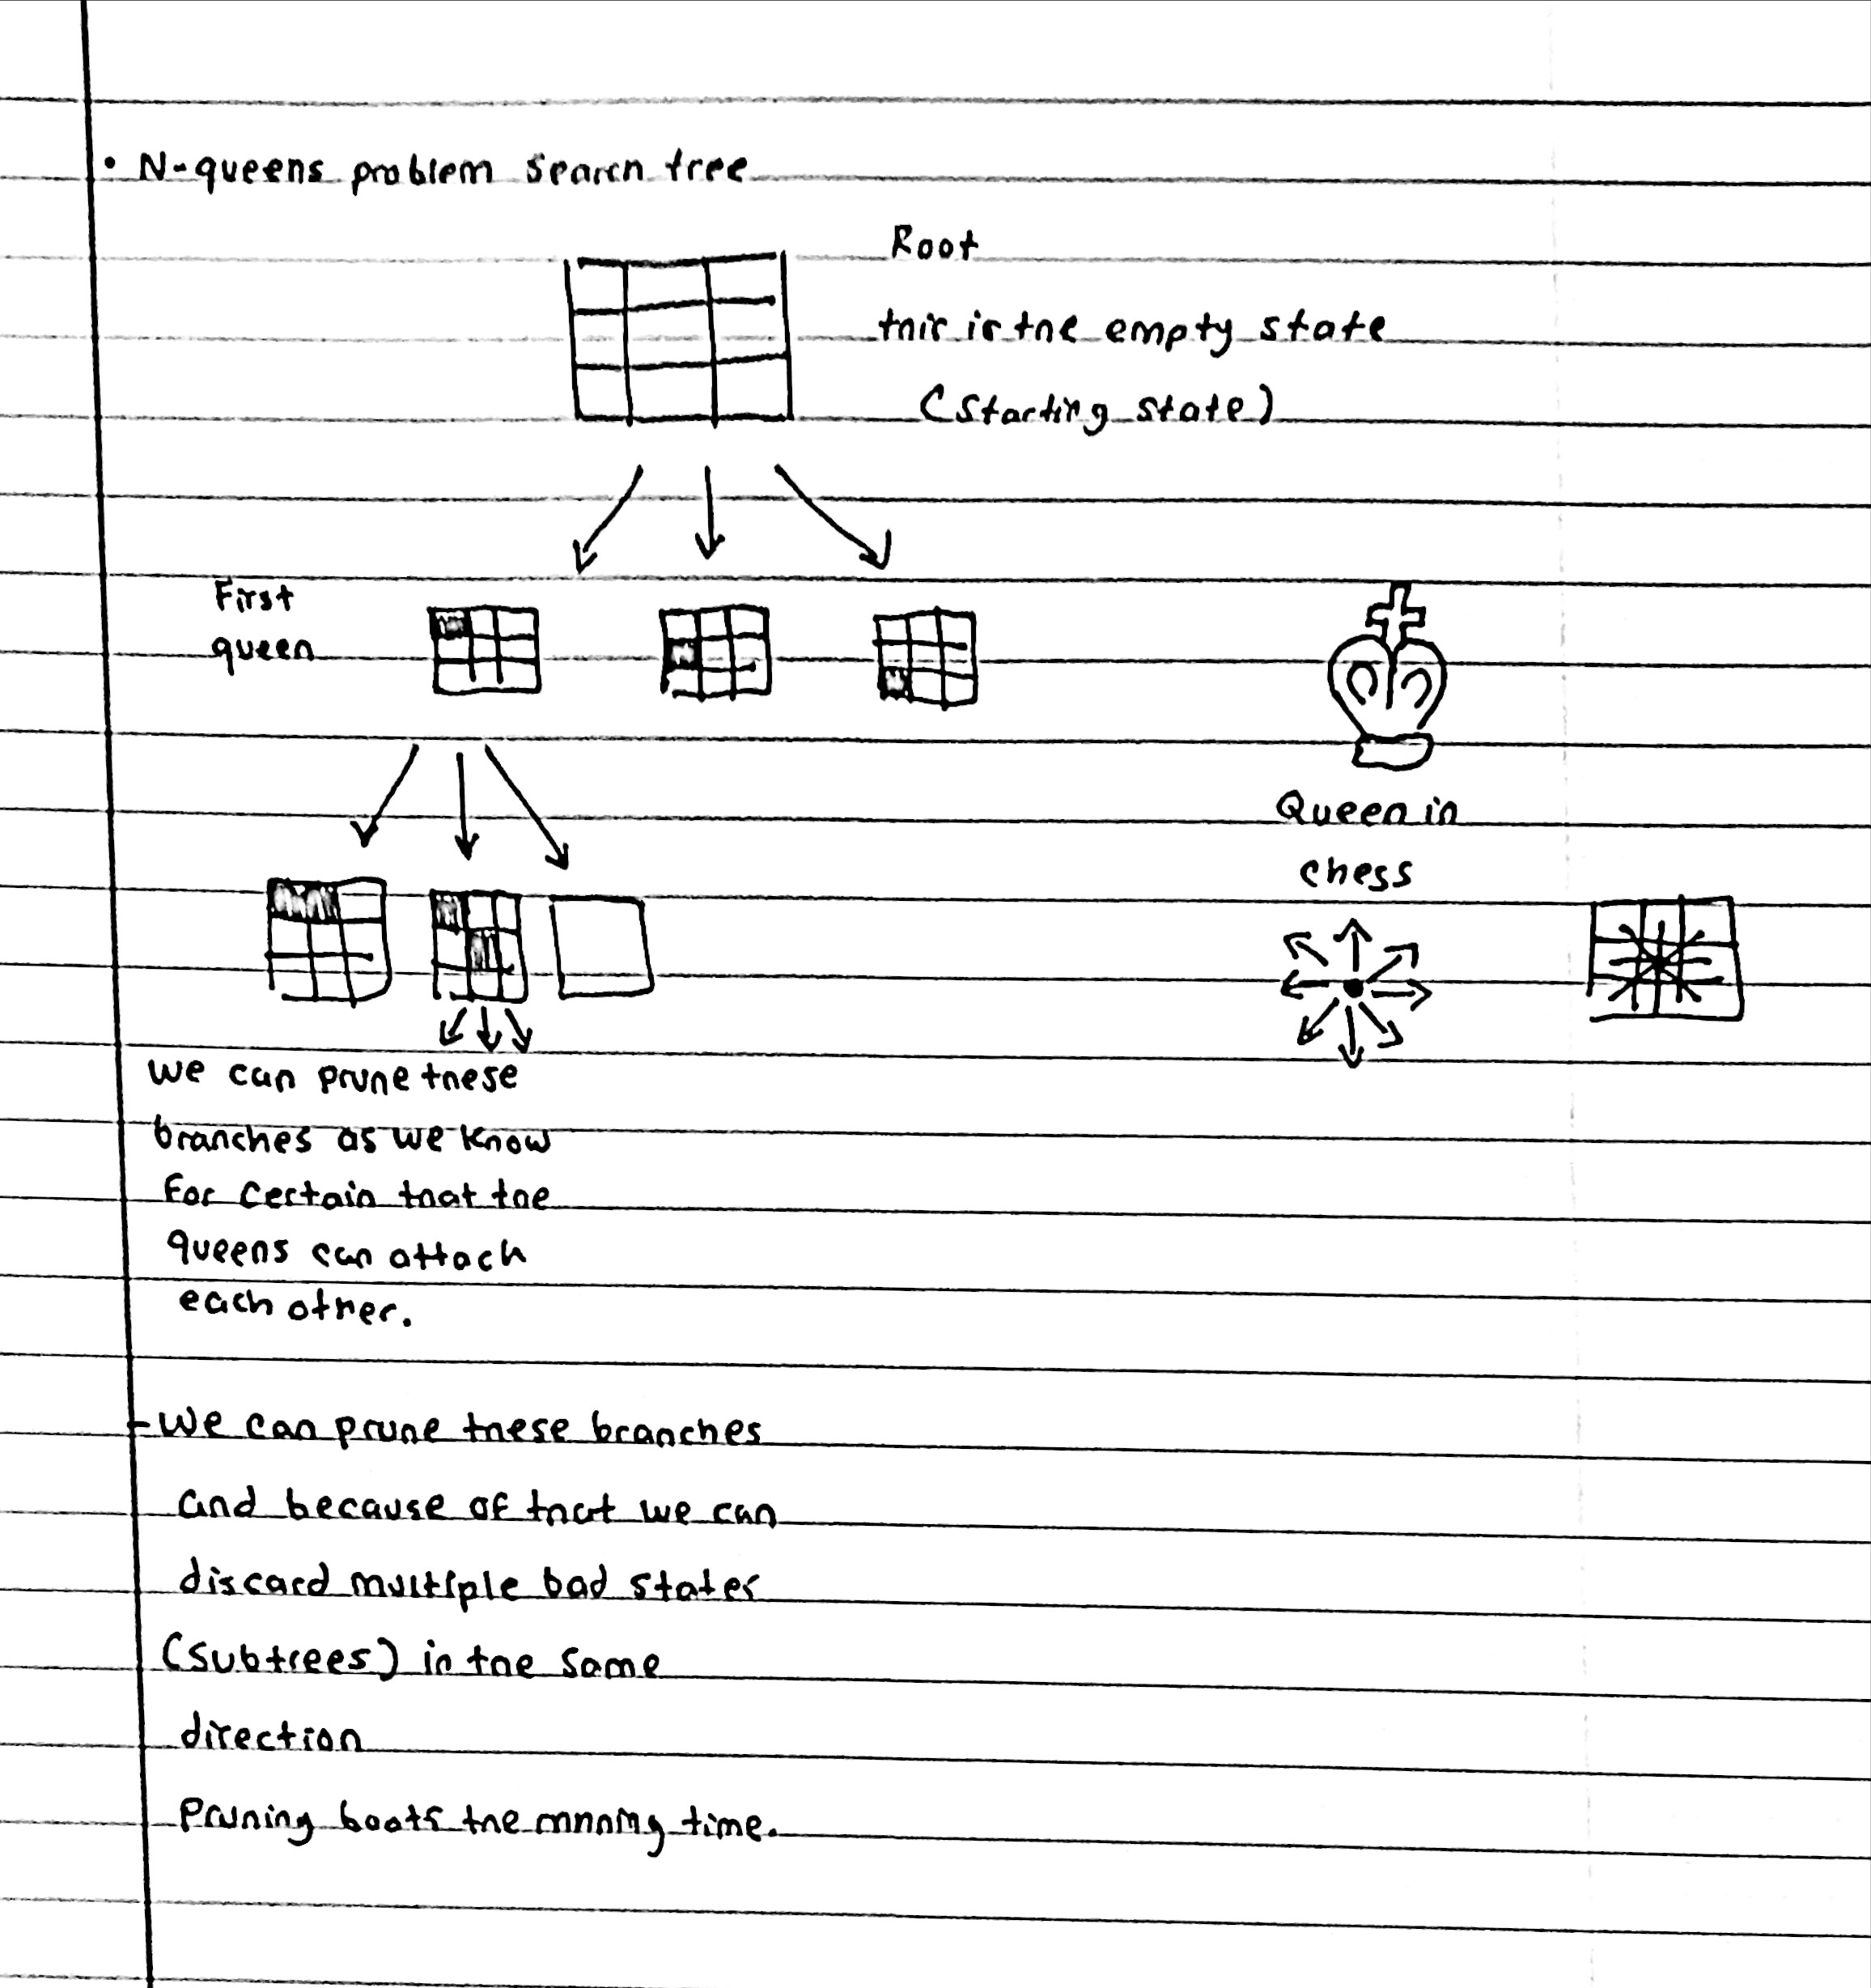 • N-queens problem search tree
Root
this is the empty state
(starting state)
First
queen
Queen in
chess
we can prune these
branches as we know
For certain that the
queens can attack
each other.
- We can prune these branches
and because of that we can
discard multiple bad states
(subtrees) in the same
direction
Pruning boots the running time.